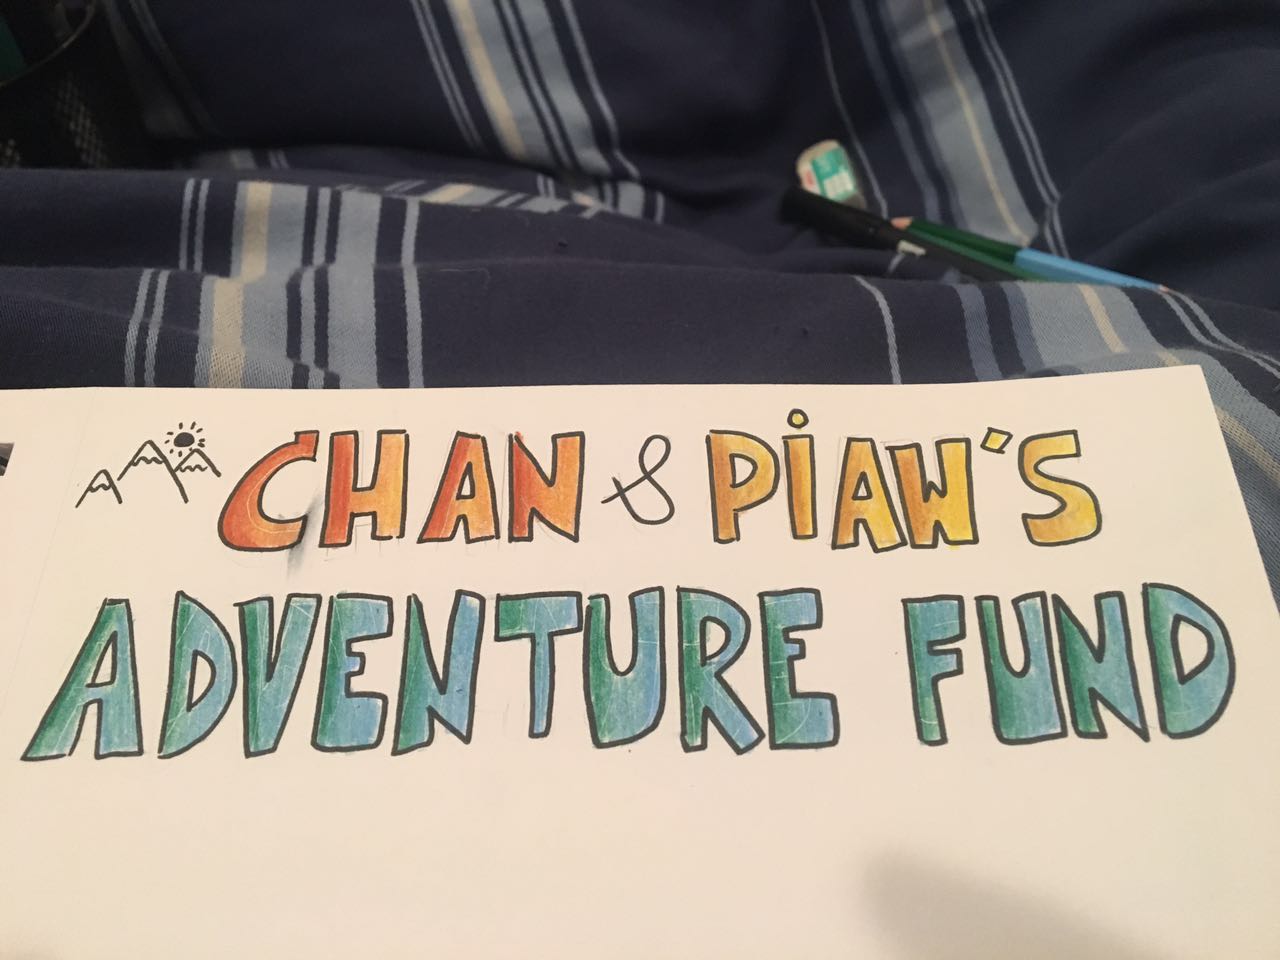 CHAN & PiAW'S
ADVENTURE FUND